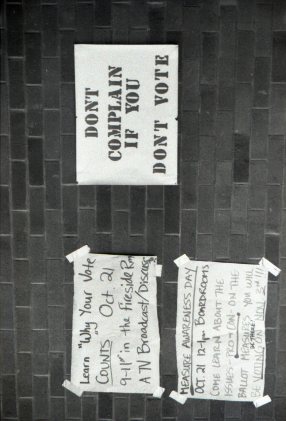 DONT
COMPLAIN
IF YOU
DONT VOTE
Learn "Why Your Vote
COUNTS" Oct 21
9-11 in the Fireside Rm
ATN Broadcast/Discuss
MEASURE AWARENESS DAY
OCT. 21 12-4pm BOARDROOMS
COME LEARN ABOUT THE
ISSUES - PRO & CON ON THE
BALLOT MEASURES YOU WILL
BE VOTING ON NOV. 3rd!!!